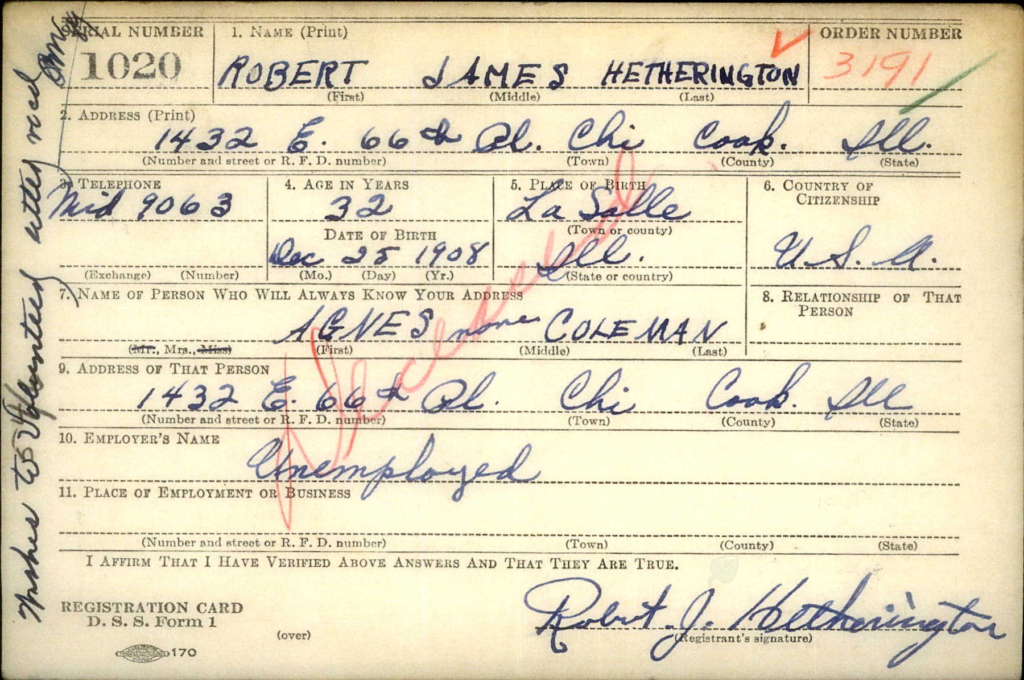 SERIAL NUMBER 1. NAME (Print) ORDER NUMBER
1020 ROBERT JAMES HETHERINGTON 3191
(First) (Middle) (Last)
2. ADDRESS (Print)
1432 E. 66th Pl. Chi Cook. Ill.
(Number and street or R. F. D. number) (Town) (County) (State)
3. TELEPHONE 4. AGE IN YEARS 5. PLACE OF BIRTH 6. COUNTRY OF CITIZENSHIP
Mid 9063 32 La Salle
DATE OF BIRTH (Town or county)
Dec 25 1908 Ill. U. S. A.
(Exchange) (Number) (Mo.) (Day) (Yr.) (State or country)
7. NAME OF PERSON WHO WILL ALWAYS KNOW YOUR ADDRESS 8. RELATIONSHIP OF THAT PERSON
AGNES none COLEMAN
(Mr., Mrs., Miss) (First) (Middle) (Last)
9. ADDRESS OF THAT PERSON
1432 E. 66th Pl. Chi Cook. Ill
(Number and street or R. F. D. number) (Town) (County) (State)
10. EMPLOYER'S NAME
Unemployed
11. PLACE OF EMPLOYMENT OR BUSINESS
(Number and street or R. F. D. number) (Town) (County) (State)
I AFFIRM THAT I HAVE VERIFIED ABOVE ANSWERS AND THAT THEY ARE TRUE.
REGISTRATION CARD
D. S. S. Form 1
(over)
170
Robert J. Hetherington
(Registrant's signature)
Deceased
Wishes to Volunteer letter recd